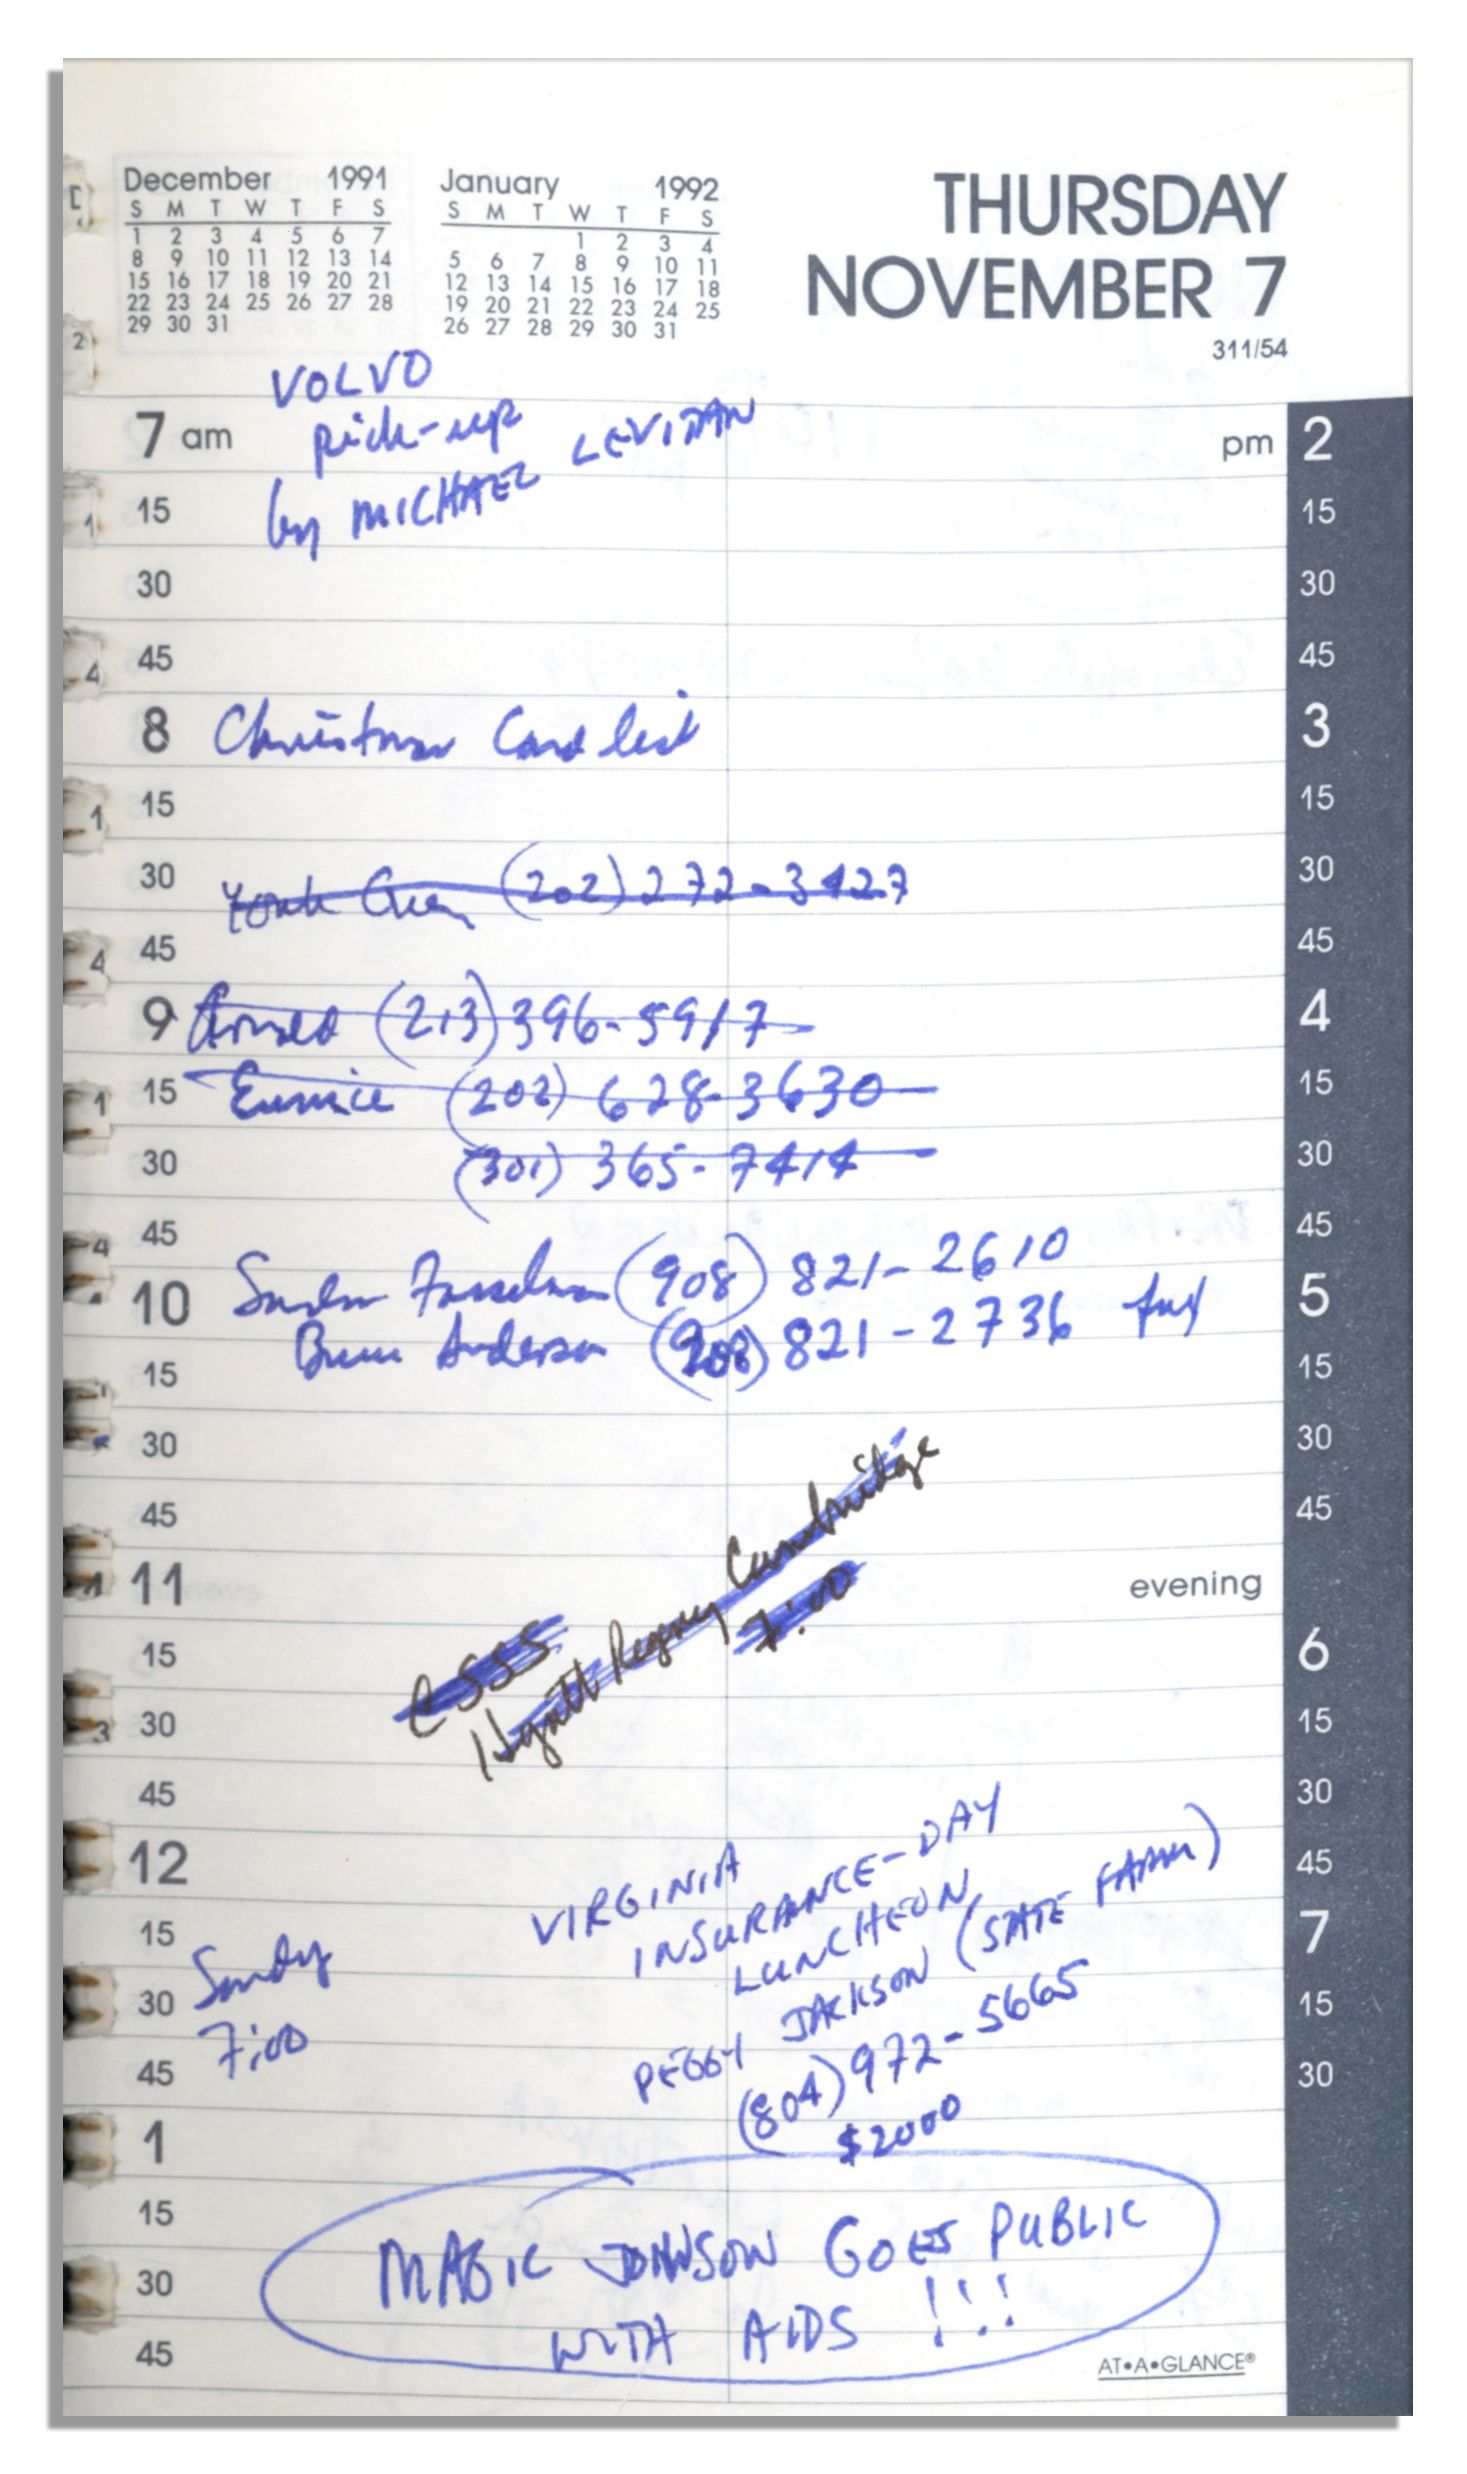 December 1991
S M T W T F S
1 2 3 4 5 6 7
8 9 10 11 12 13 14
15 16 17 18 19 20 21
22 23 24 25 26 27 28
29 30 31
January 1992
S M T W T F S
1 2 3 4
5 6 7 8 9 10 11
12 13 14 15 16 17 18
19 20 21 22 23 24 25
26 27 28 29 30 31
THURSDAY
NOVEMBER 7
311/54
VOLVO
7 am pick-up pm 2
15 by MICHAEL LEVITAN 15
30 30
45 45
8 Christmas Card list 3
15 15
30 (202) 272-3427 30
45 45
9 (213) 396-5917 4
15 Eunice (202) 628-3630 15
30 (301) 365-7414 30
45 45
10 (908) 821-2610 5
Anderson (908) 821-2736 fax
15 15
30 30
45 45
11 evening
CSSS
Hyatt Regency Cambridge
7:00
15 6
30 15
45 30
12 45
VIRGINIA
INSURANCE-DAY
LUNCHEON
PEGGY JACKSON (STATE FARM)
(804) 972-5665
$2000
15 7
Sandy
30 15
7:00
45 30
1
15
MAGIC JOHNSON GOES PUBLIC
30
WITH AIDS !!!
45
AT•A•GLANCE®